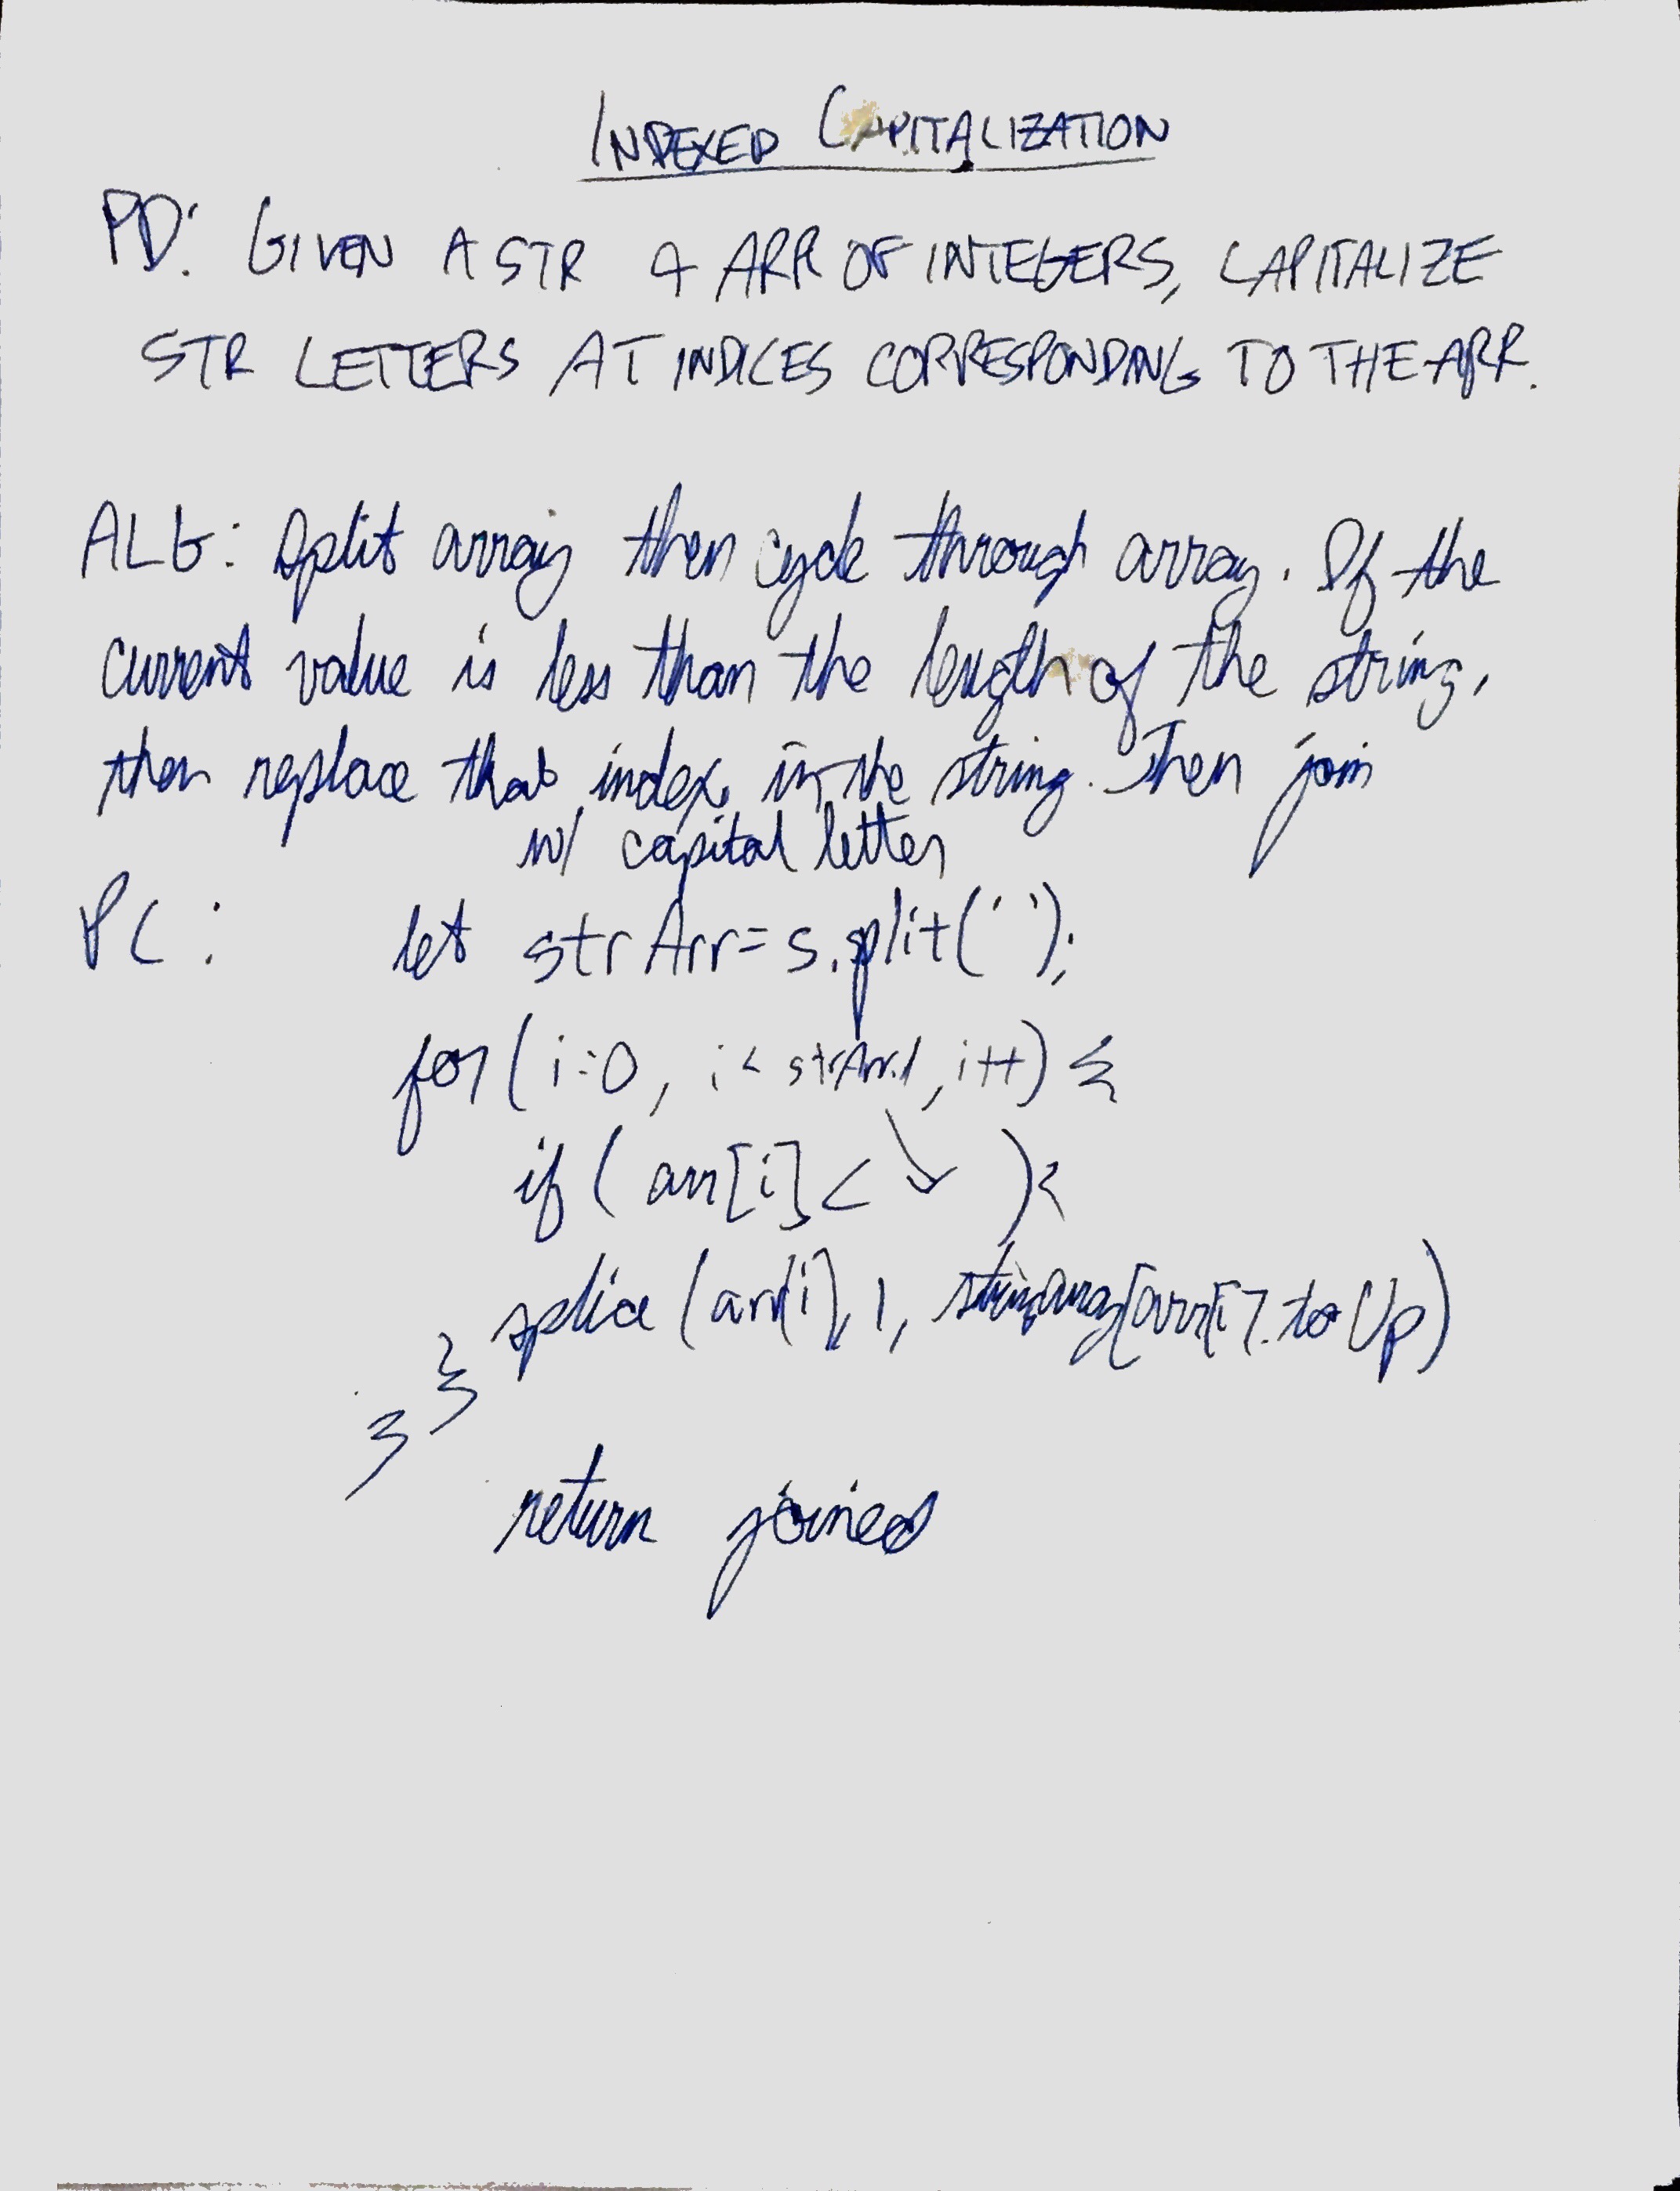 INDEXED CAPITALIZATION
PD: GIVEN A STR & ARR OF INTEGERS, CAPITALIZE
STR LETTERS AT INDICES CORRESPONDING TO THE ARR.
ALG: Split array then cycle through array. If the
current value is less than the length of the string,
then replace that index in the string. Then join
w/ capital letter
PC: let strArr = s.split('');
for (i=0, i < strArr.l, i++) {
if (arr[i] < ↘ ) {
splice (arr[i], 1, [arr[i].toUp)
}
}
return joined